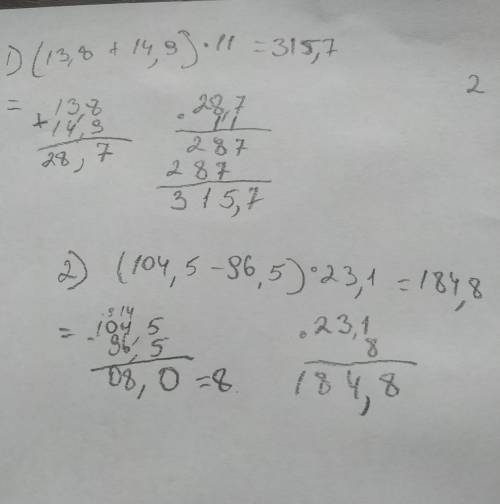 1) (13,8 + 14,9) · 11 = 315,7
2
=
13,8
+ 14,9
28,7
· 28,7
11
287
287
315,7
2) (104,5 - 96,5) · 23,1 = 184,8
=
9 14
- 104 5
96,5
08,0 = 8
· 23,1
8
184,8